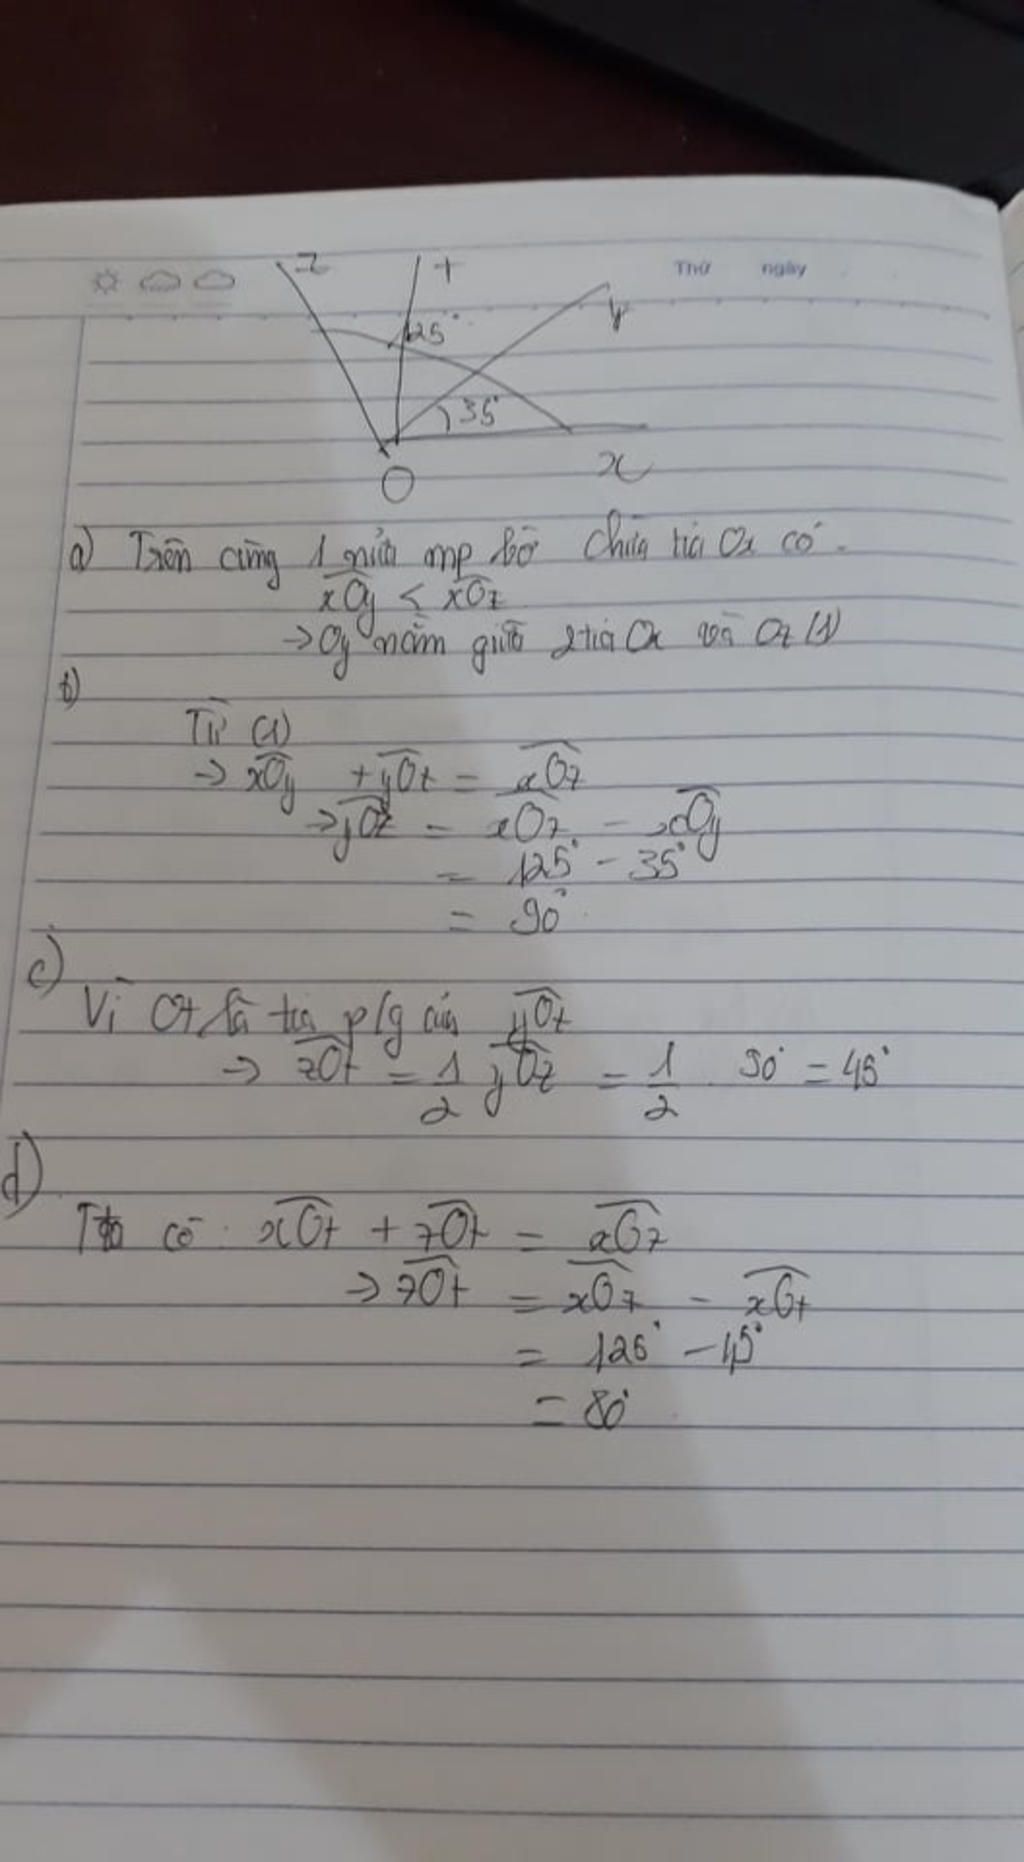 z t Thứ ngày
125° y
35°
x
O
a) Trên cùng 1 nửa mp bờ chứa tia Ox có
xOy < xOz
→ Oy nằm giữa 2 tia Ox và Oz (1)
b)
Từ (1)
→ xOy + yOt = xOz
→ yOz = xOz - xOy
= 125° - 35°
= 90°
c)
Vì Ot là tia p/g của yOt
→ zOt = 1/2 yOz = 1/2 . 90° = 45°
d)
Ta có: xOt + zOt = xOz
→ zOt = xOz - xOt
= 125° - 45°
= 80°